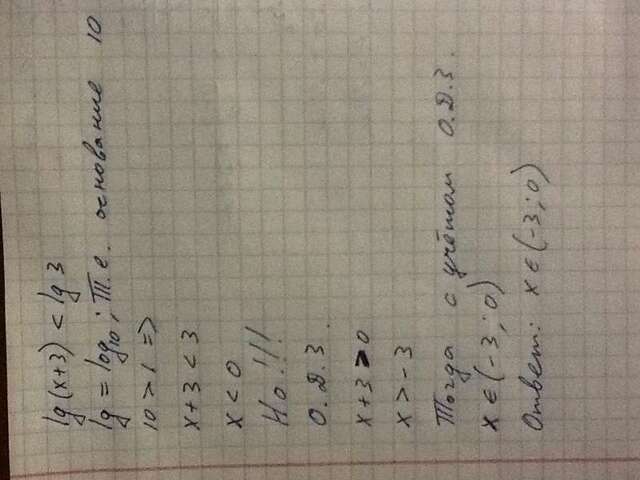 lg(x+3) < lg 3
lg = log₁₀; Т.е. основание 10
10 > 1 =>
x+3 < 3
x < 0
Но!!!
О.Д.З.
x+3 > 0
x > -3
Тогда с учётом О.Д.З.
x ∈ (-3; 0)
Ответ: x ∈ (-3; 0)